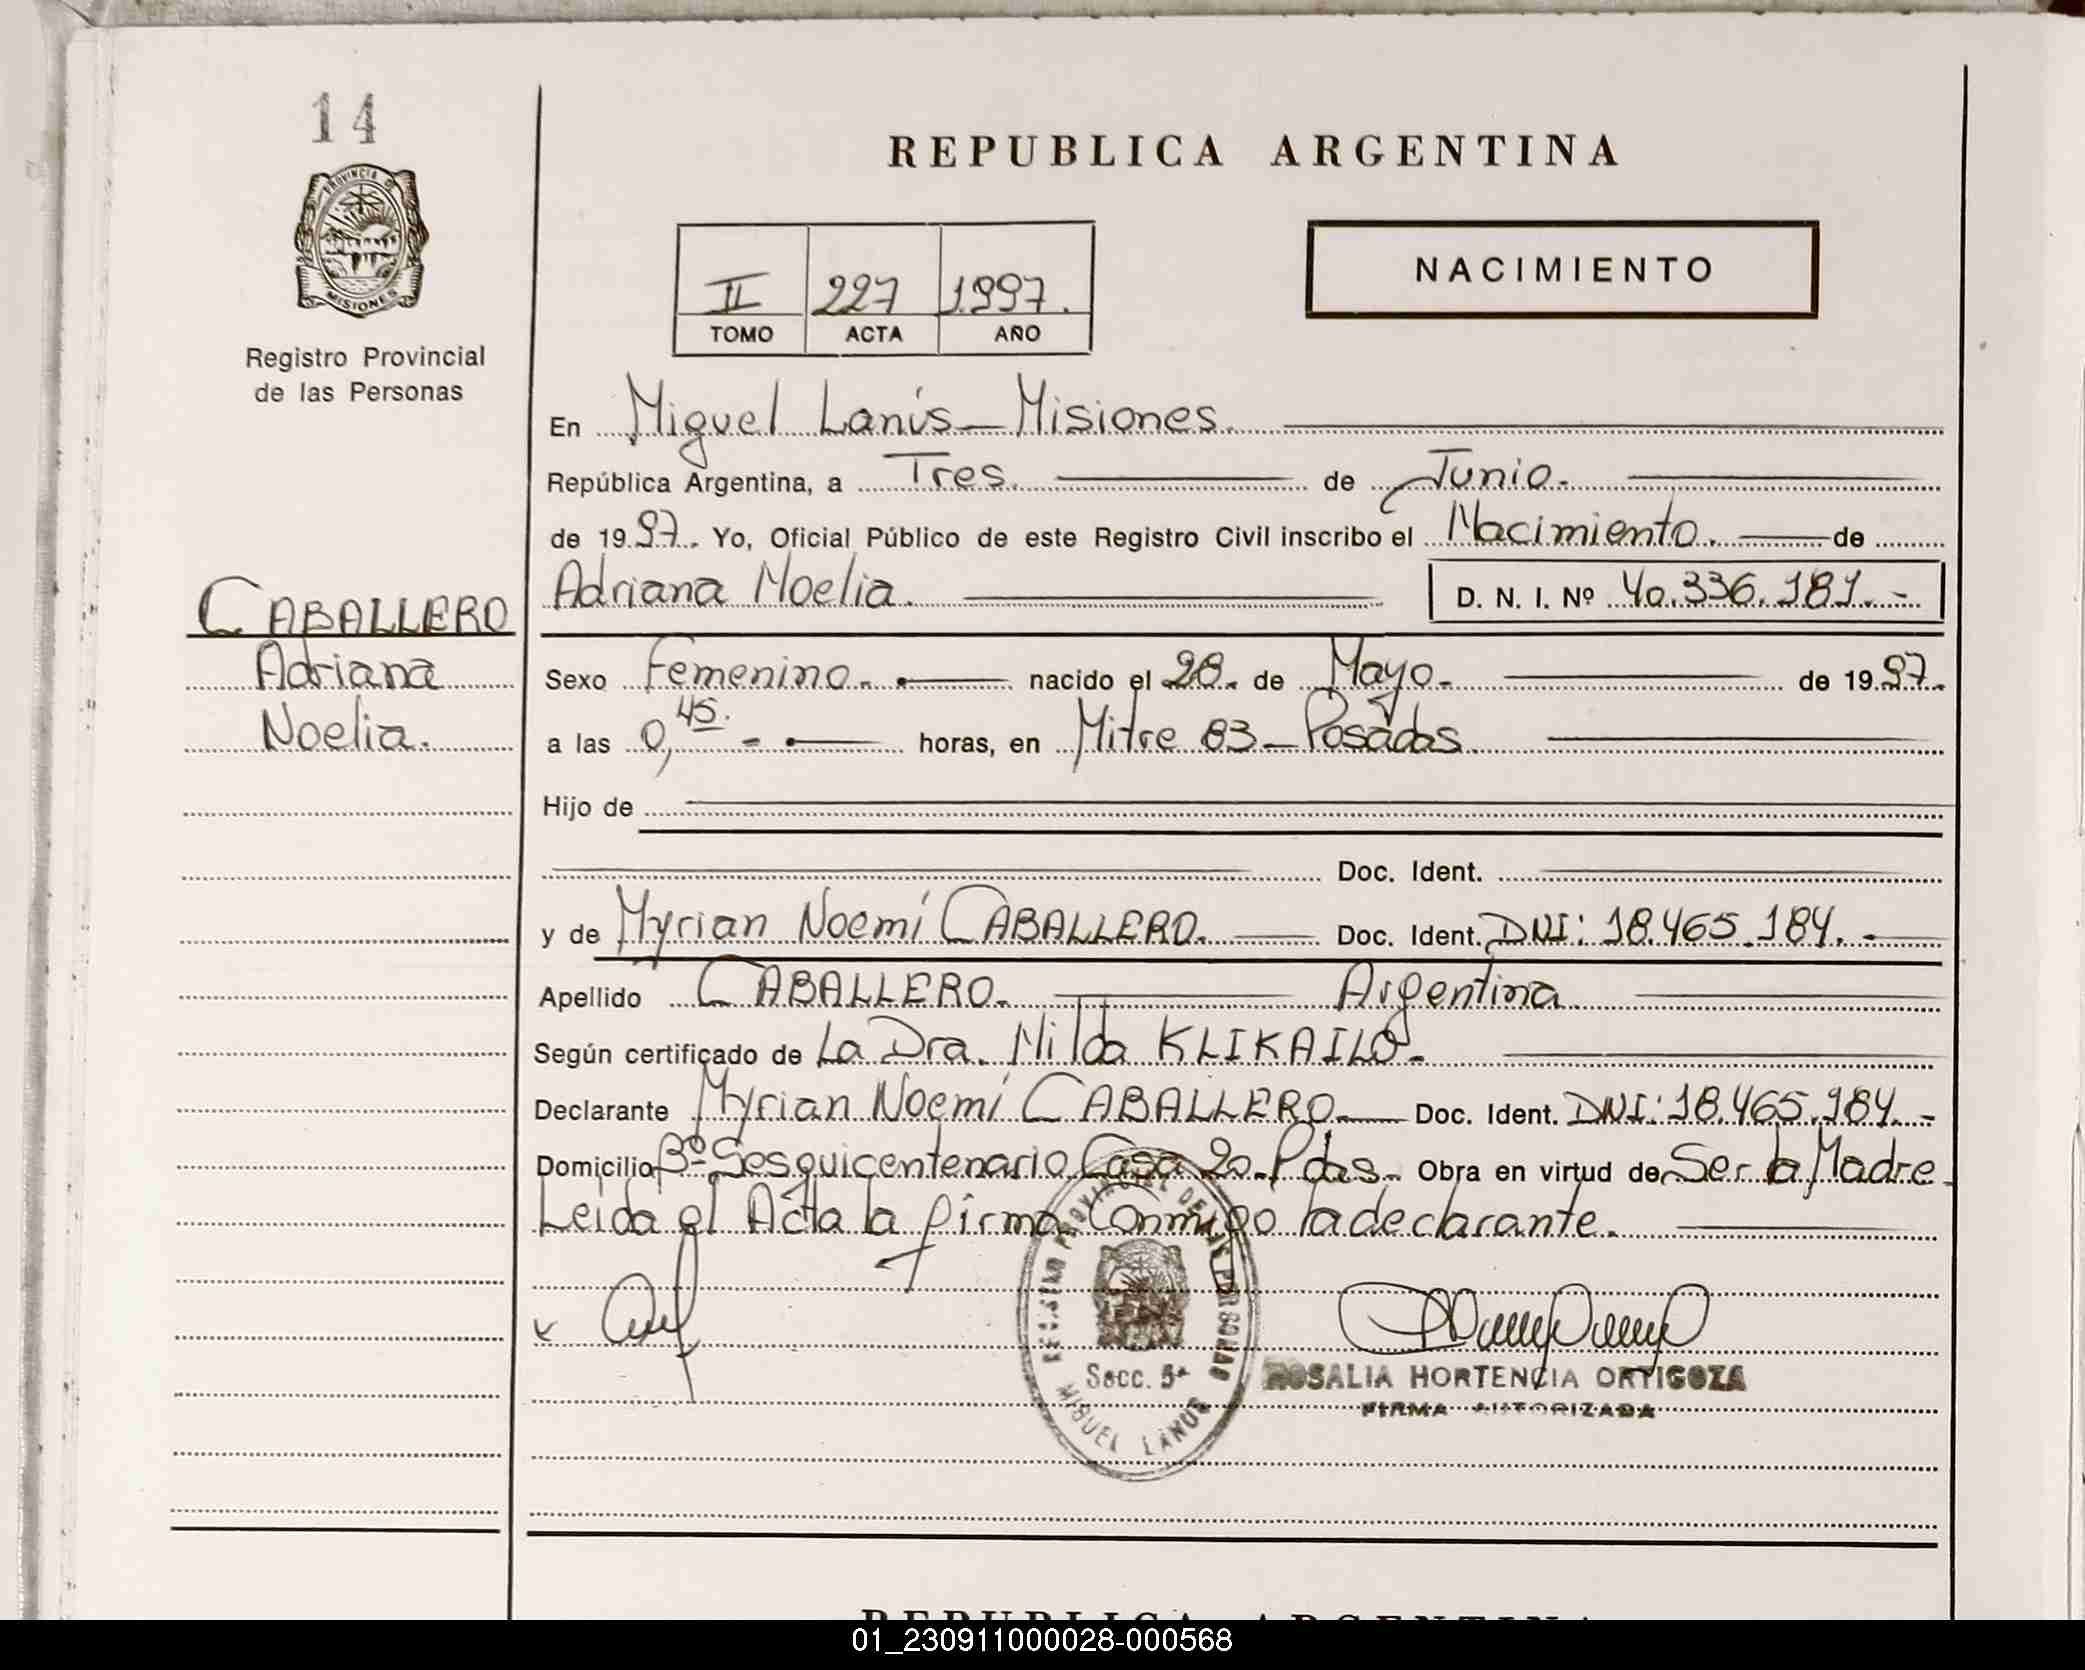 14
PROVINCIA DE
MISIONES
Registro Provincial
de las Personas
REPUBLICA ARGENTINA
II 227 1997.
TOMO ACTA AÑO
NACIMIENTO
En Miguel Lanús - Misiones.
República Argentina, a Tres. de Junio.
de 1997. Yo, Oficial Público de este Registro Civil inscribo el Nacimiento. de
Adriana Noelia. D. N. I. Nº 40.336.181.-
CABALLERO
Adriana
Noelia.
Sexo Femenino. nacido el 28. de Mayo. de 1997.
a las 0,45. - horas, en Mitre 83 - Posadas
Hijo de
Doc. Ident.
y de Myrian Noemí CABALLERO. Doc. Ident. DNI: 18.465.184.-
Apellido CABALLERO. Argentina
Según certificado de La Dra. Nilda KLIKAILO.
Declarante Myrian Noemí CABALLERO Doc. Ident. DNI: 18.465.184.-
Domicilio Bº Sesquicentenario Casa 20. Pdas. Obra en virtud de Ser la Madre
Leida el Acta la firma Conmigo la declarante.
REGISTRO PROVINCIAL DE LAS PERSONAS
Secc. 5ª
MIGUEL LANUS
ROSALIA HORTENCIA ORTIGOZA
FIRMA AUTORIZADA
REPUBLICA ARGENTINA
01_230911000028-000568